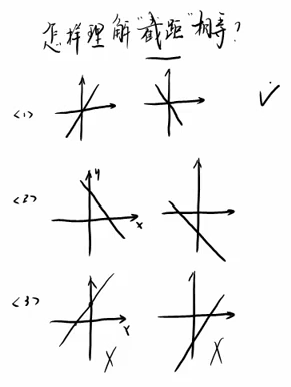 怎样理解"截距"相等？
<1>
<2> y x
<3> x
X X